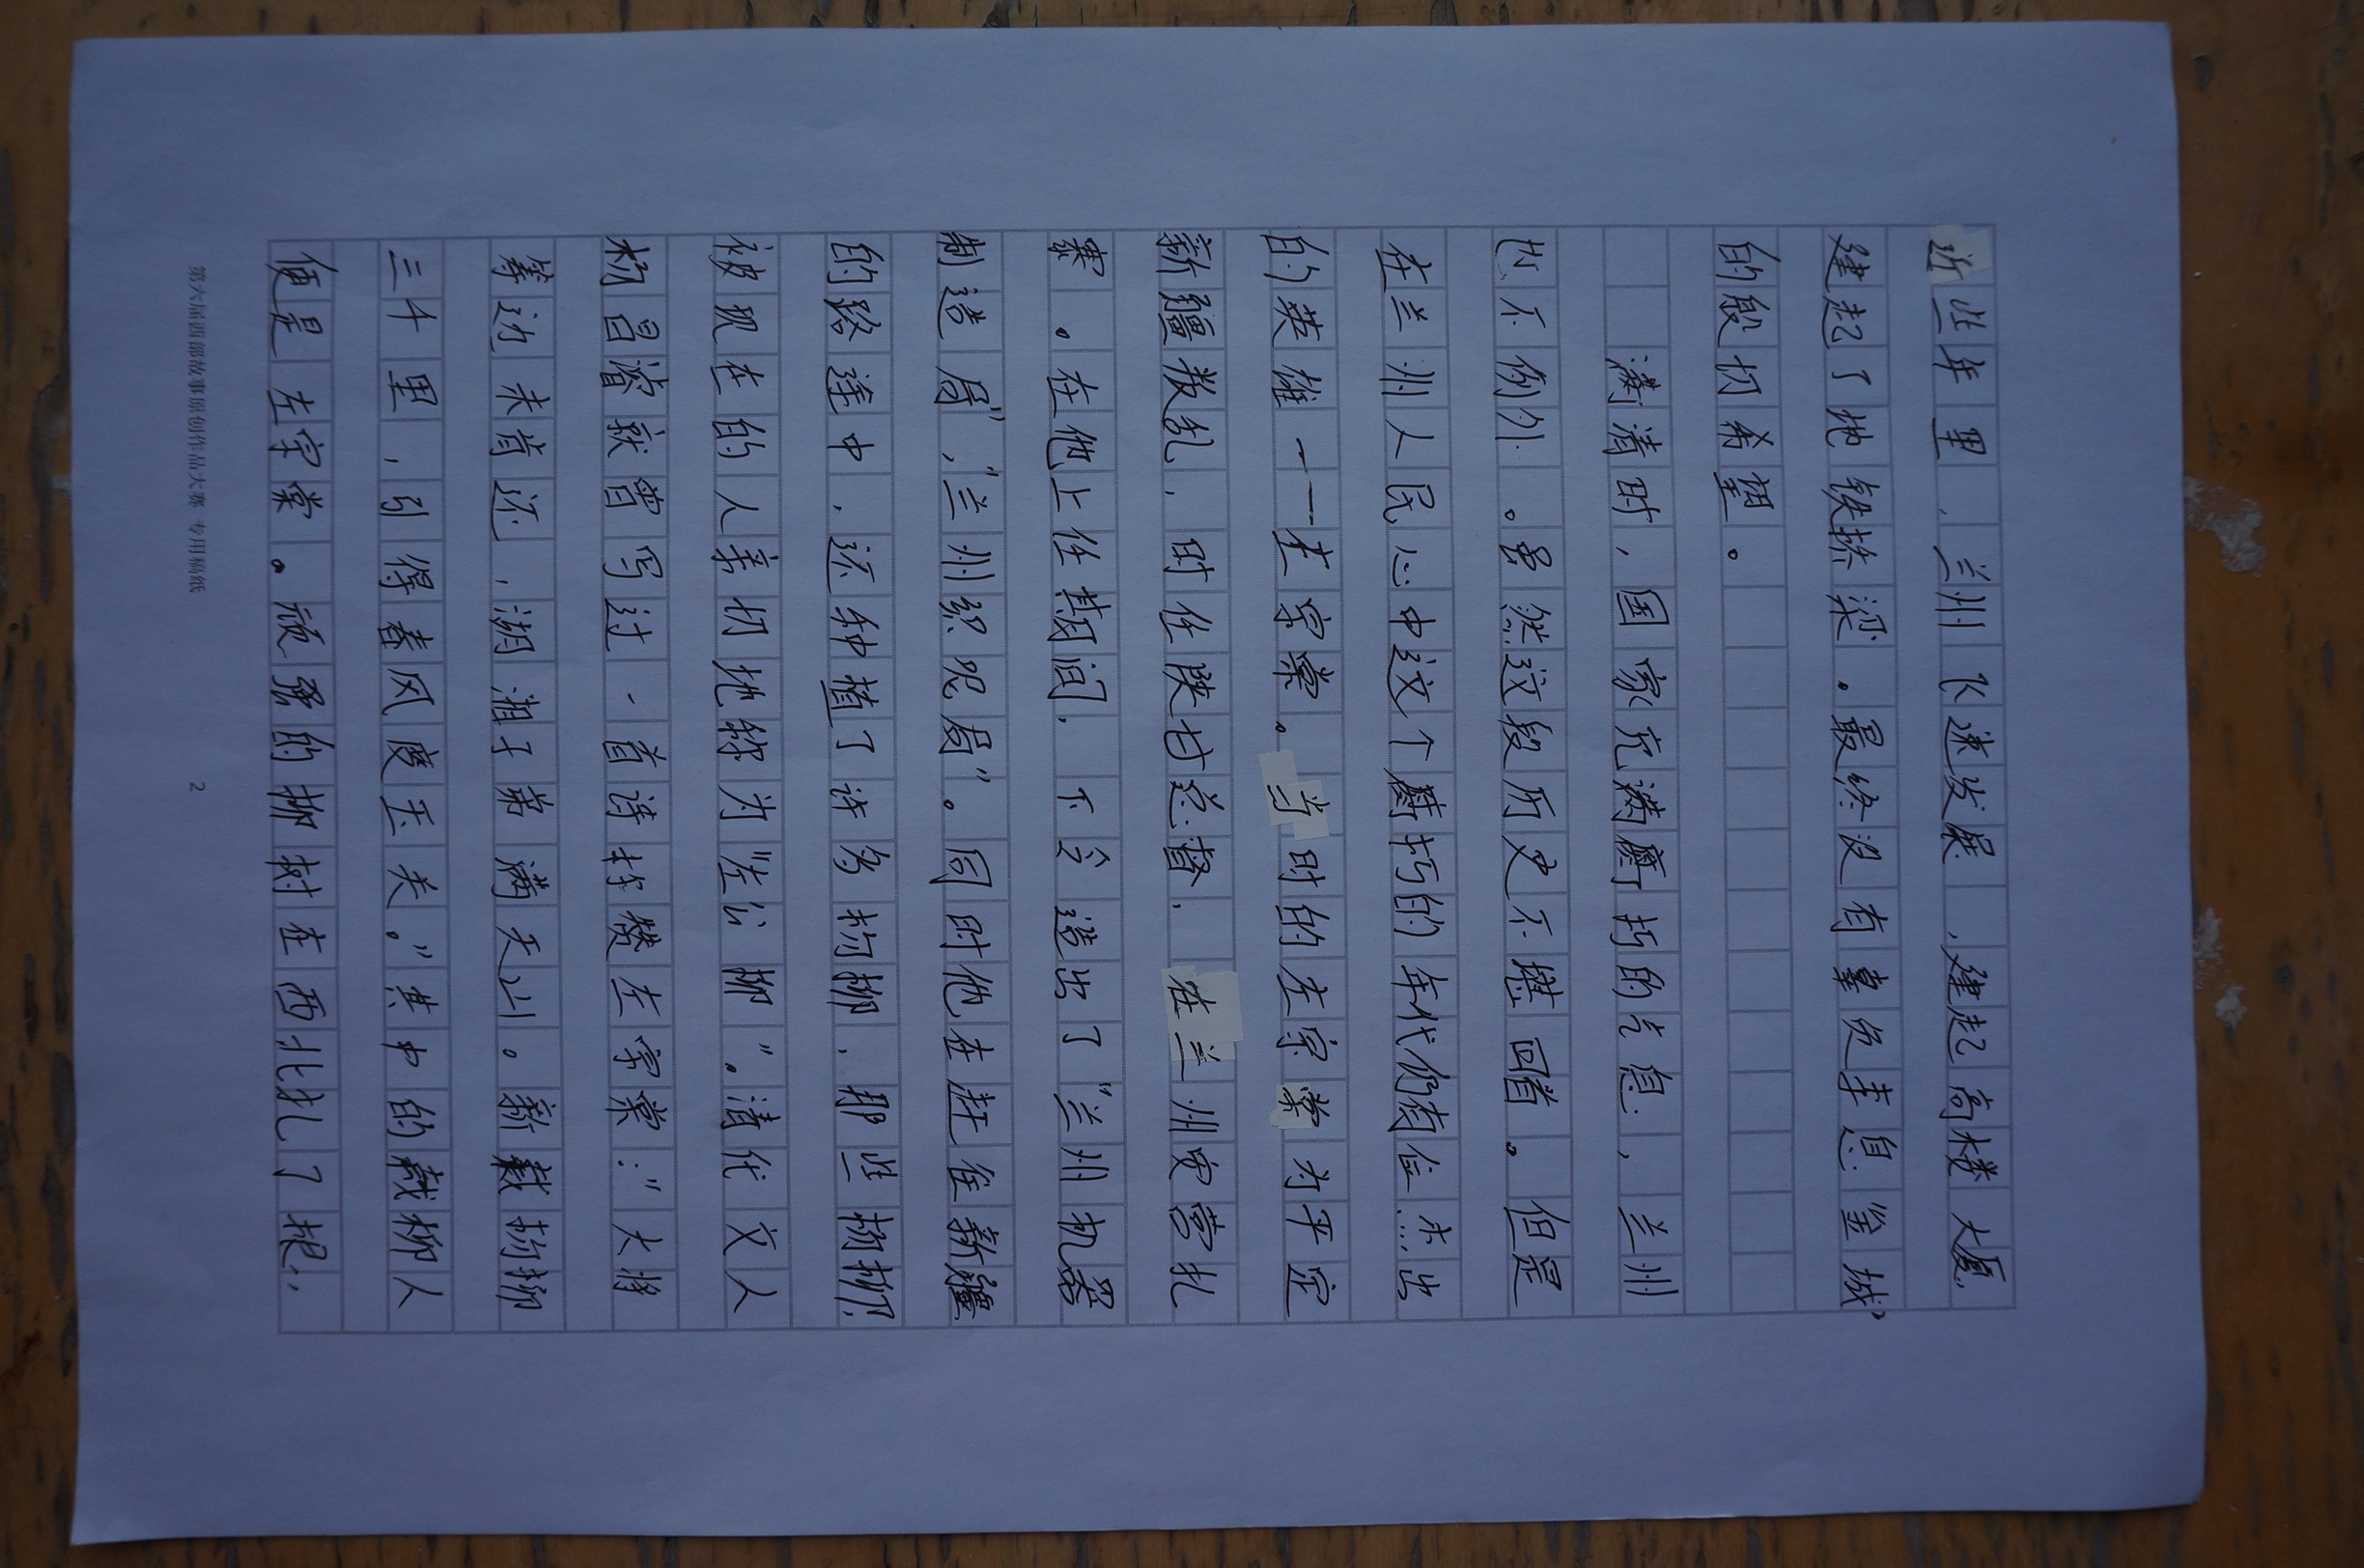 近些年里，兰州飞速发展，建起高楼大厦，
建起了地铁桥梁。最终没有辜负李息“金城”
的殷切希望。
满清时，国家充满腐朽的气息，兰州
也不例外。虽然这段历史不堪回首。但是
在兰州人民心中这个腐朽的年代仍有位杰出
的英雄——左宗棠。当时的左宗棠为平定
新疆叛乱，时任陕甘总督，在兰州安营扎
寨。在他上任期间，下令造出了“兰州机器
制造局”，“兰州织呢局”。同时他在赶往新疆
的路途中，还种植了许多杨柳，那些杨柳
被现在的人亲切地称为“左公柳”。清代文人
杨昌濬就曾写过一首诗称赞左宗棠：“大将
筹边未肯还，湖湘子弟满天山。新栽杨柳
三千里，引得春风度玉关。”其中的栽柳人
便是左宗棠。顽强的柳树在西北扎了根，
第六届西部故事原创作品大赛 专用稿纸 2